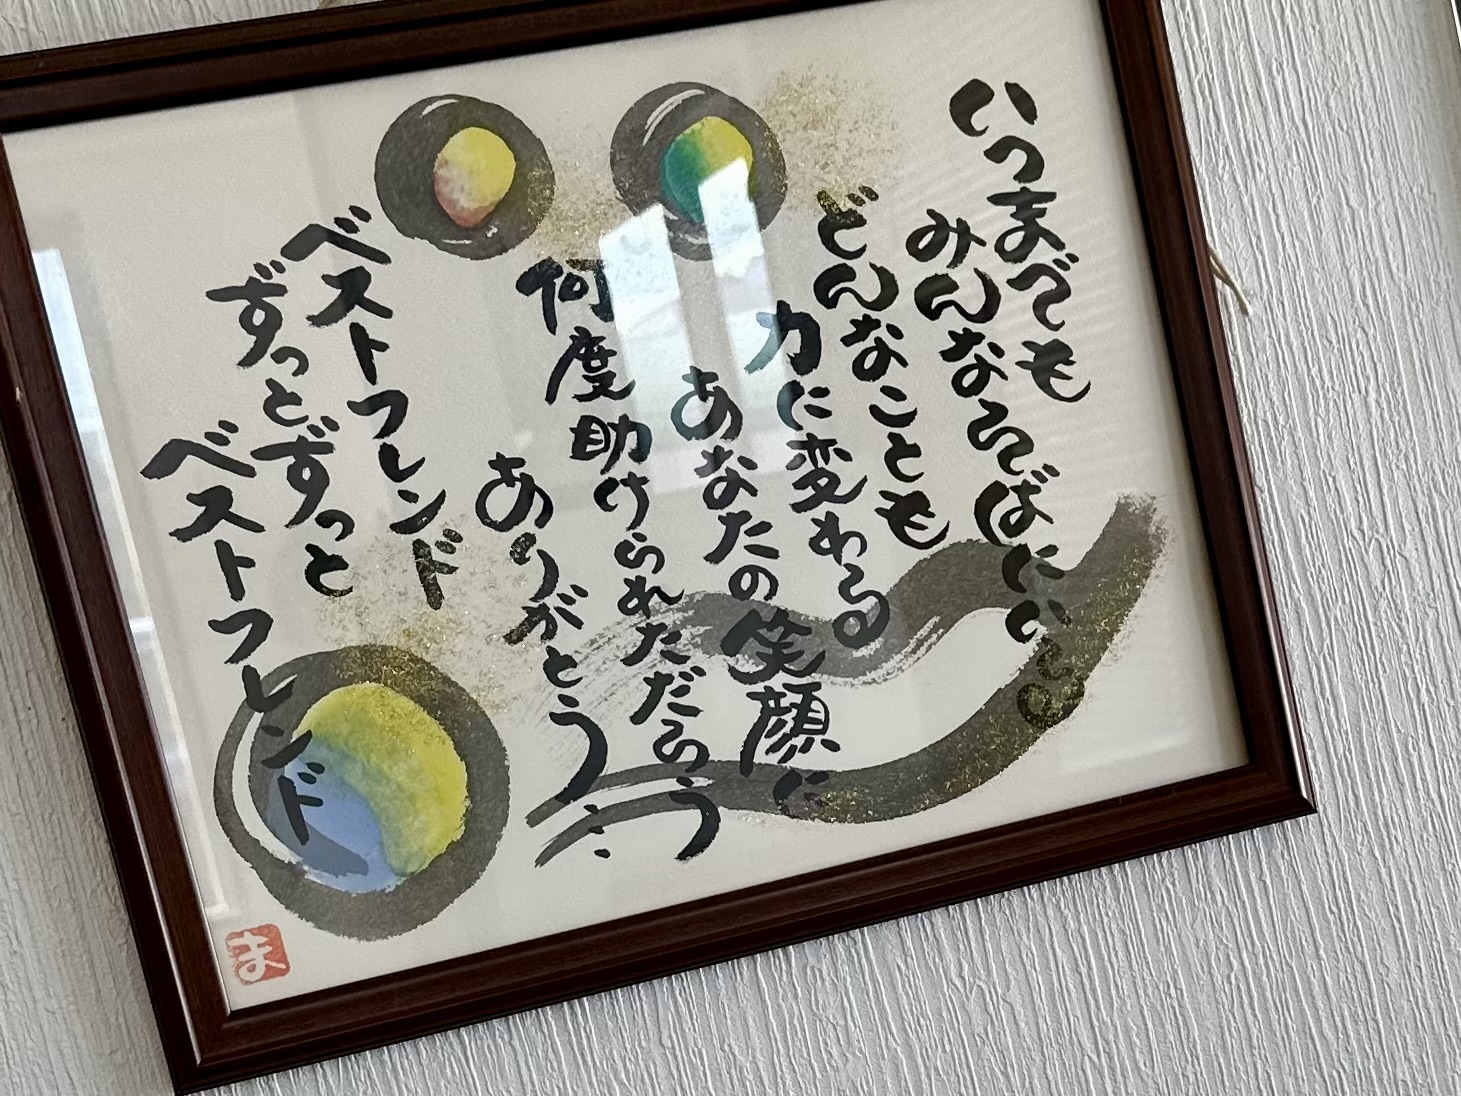 いつまでも
みんなそばにいる
どんなことも
力に変わる
あなたの笑顔に
何度助けられただろう
ありがとう…
ベストフレンド
ずっとずっと
ベストフレンド
ま